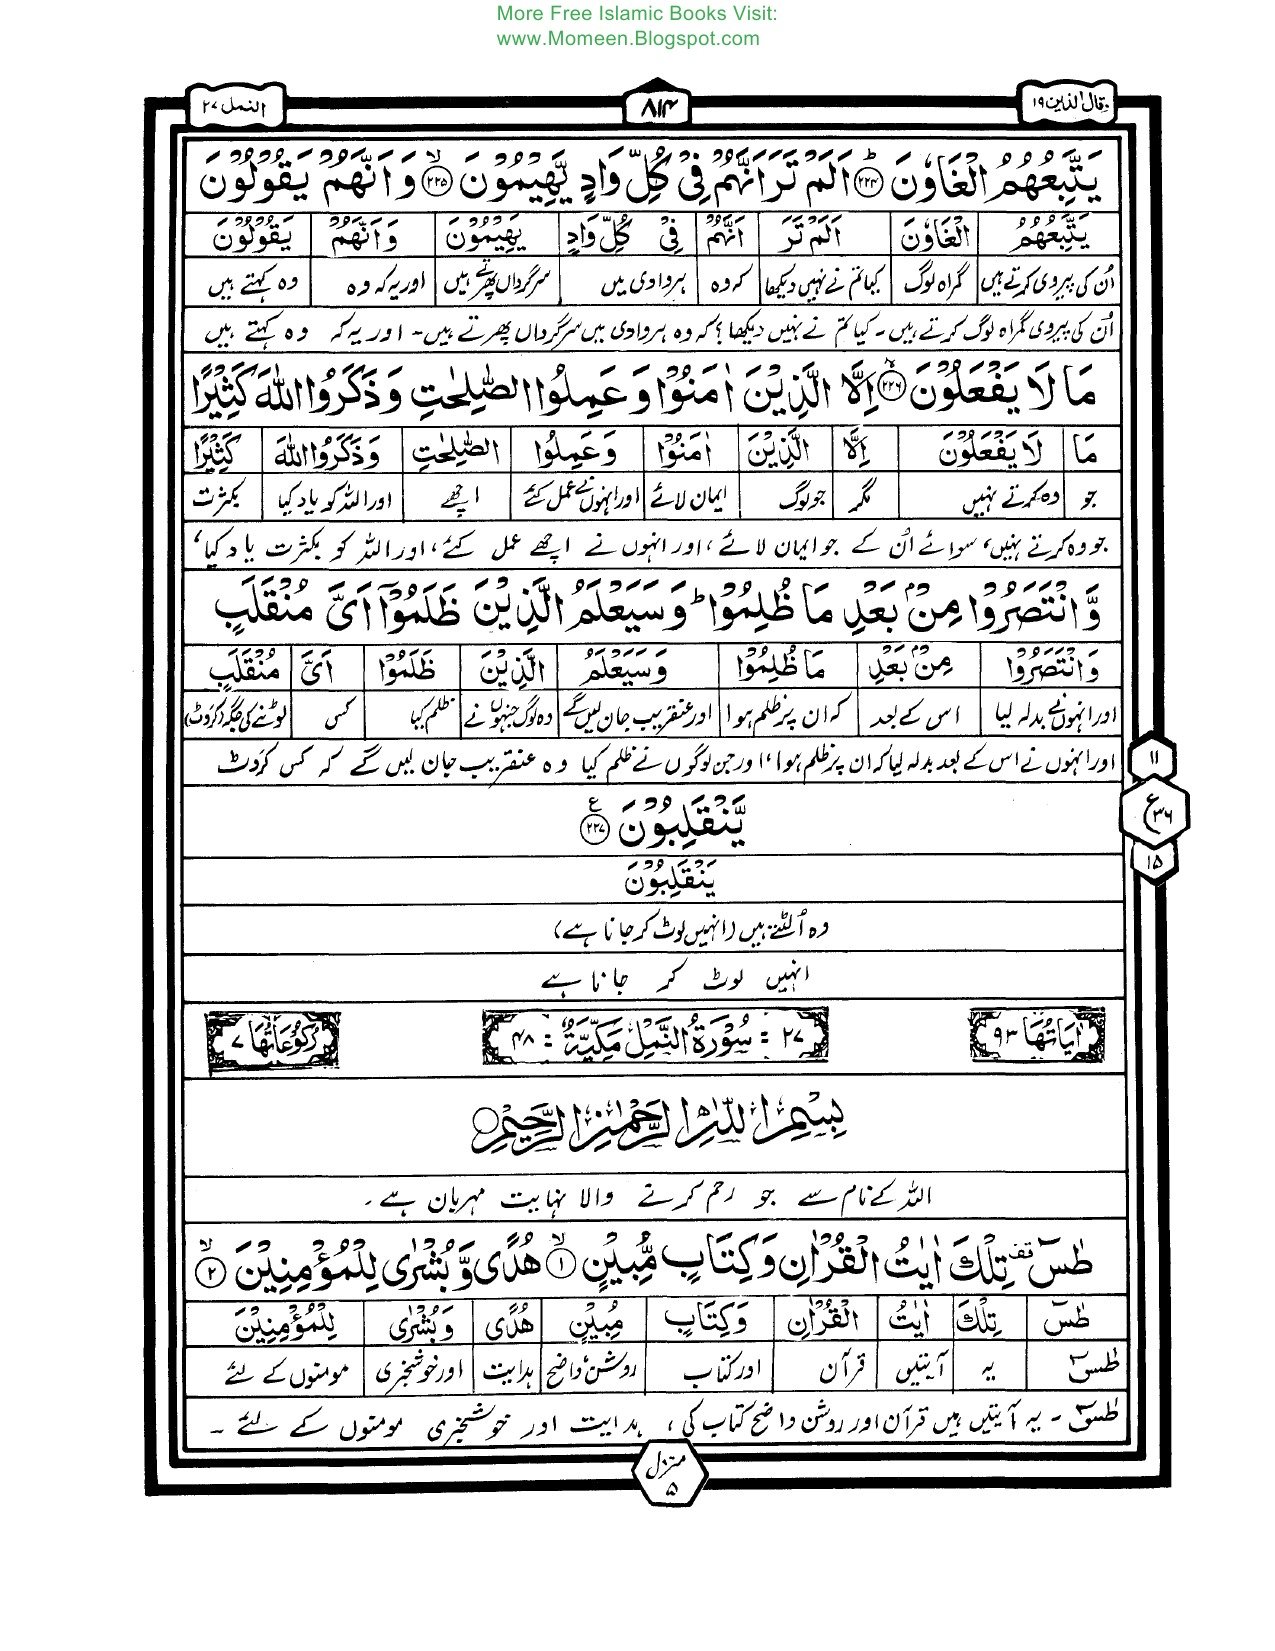 More Free Islamic Books Visit:
www.Momeen.Blogspot.com
وقال الذین ۱۹
۸۱۴
النمل ۲۷
یَتَّبِعُهُمُ الْغَاوٗنَ ﴿۲۲۴﴾ؕ اَلَمْ تَرَ اَنَّهُمْ فِیْ كُلِّ وَادٍ یَّهِیْمُوْنَ ﴿۲۲۵﴾ۙ وَ اَنَّهُمْ یَقُوْلُوْنَ
یَتَّبِعُهُمُ الْغَاوٗنَ اَلَمْ تَرَ اَنَّهُمْ فِیْ كُلِّ وَادٍ یَهِیْمُوْنَ وَ اَنَّهُمْ یَقُوْلُوْنَ
اُن کی پیروی کرتے ہیں گمراہ لوگ کیا تم نے نہیں دیکھا کہ وہ ہر وادی میں سرگرداں پھرتے ہیں اور یہ کہ وہ وہ کہتے ہیں
اُن کی پیروی گمراہ لوگ کرتے ہیں۔ کیا تم نے نہیں دیکھا؟ کہ وہ ہر وادی میں سرگرداں پھرتے ہیں۔ اور یہ کہ وہ کہتے ہیں
مَا لَا یَفْعَلُوْنَ ﴿۲۲۶﴾ۙ اِلَّا الَّذِیْنَ اٰمَنُوْا وَ عَمِلُوا الصّٰلِحٰتِ وَ ذَكَرُوا اللّٰهَ كَثِیْرًا
مَا لَا یَفْعَلُوْنَ اِلَّا الَّذِیْنَ اٰمَنُوْا وَ عَمِلُوا الصّٰلِحٰتِ وَ ذَكَرُوا اللّٰهَ كَثِیْرًا
جو وہ کرتے نہیں مگر جو لوگ ایمان لائے اور انہوں نے عمل کئے اچھے اور اللہ کو یاد کیا بکثرت
جو وہ کرتے نہیں، سوائے اُن کے جو ایمان لائے، اور انہوں نے اچھے عمل کئے، اور اللہ کو بکثرت یاد کیا،
وَّ انْتَصَرُوْا مِنْۢ بَعْدِ مَا ظُلِمُوْا ؕ وَ سَیَعْلَمُ الَّذِیْنَ ظَلَمُوْۤا اَیَّ مُنْقَلَبٍ
وَ انْتَصَرُوْا مِنْۢ بَعْدِ مَا ظُلِمُوْا وَ سَیَعْلَمُ الَّذِیْنَ ظَلَمُوْۤا اَیَّ مُنْقَلَبٍ
اور انہوں نے بدلہ لیا اس کے بعد کہ ان پر ظلم ہوا اور عنقریب جان لیں گے وہ لوگ جنہوں نے ظلم کیا کس لوٹنے کی جگہ (کروٹ)
اور انہوں نے اس کے بعد بدلہ لیا کہ ان پر ظلم ہوا، اور جن لوگوں نے ظلم کیا وہ عنقریب جان لیں گے کہ کس کروٹ
۱۱
ع ۳۶
۱۵
یَّنْقَلِبُوْنَ ﴿۲۲۷﴾ع
یَنْقَلِبُوْنَ
وہ اُلٹتے ہیں (انہیں لوٹ کر جانا ہے)
انہیں لوٹ کر جانا ہے
اٰیَاتُهَا ۹۳
۲۷ : سُوْرَةُ النَّمْلِ مَكِّیَّةٌ : ۴۸
رُكُوْعَاتُهَا ۷
بِسْمِ اللّٰهِ الرَّحْمٰنِ الرَّحِیْمِ
اللہ کے نام سے جو رحم کرنے والا نہایت مہربان ہے۔
طٰسٓ قف تِلْكَ اٰیٰتُ الْقُرْاٰنِ وَ كِتَابٍ مُّبِیْنٍ ﴿۱﴾ۙ هُدًی وَّ بُشْرٰی لِلْمُؤْمِنِیْنَ ﴿۲﴾ۙ
طٰسٓ تِلْكَ اٰیٰتُ الْقُرْاٰنِ وَ كِتَابٍ مُبِیْنٍ هُدًی وَ بُشْرٰی لِلْمُؤْمِنِیْنَ
طٰسٓ یہ آیتیں قرآن اور کتاب روشن، واضح ہدایت اور خوشخبری مومنوں کے لئے
طٰسٓ۔ یہ آیتیں ہیں قرآن اور روشن واضح کتاب کی، ہدایت اور خوشخبری مومنوں کے لئے۔
منزل ۵